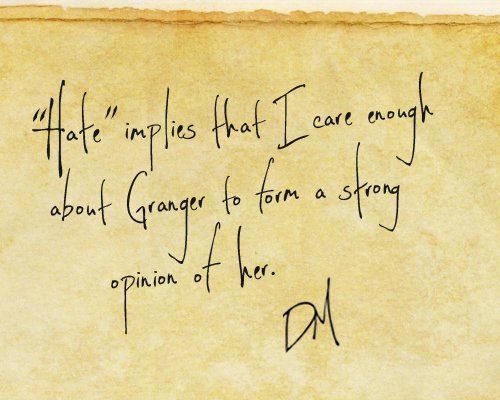 "Hate" implies that I care enough
about Granger to form a strong
opinion of her.
DM